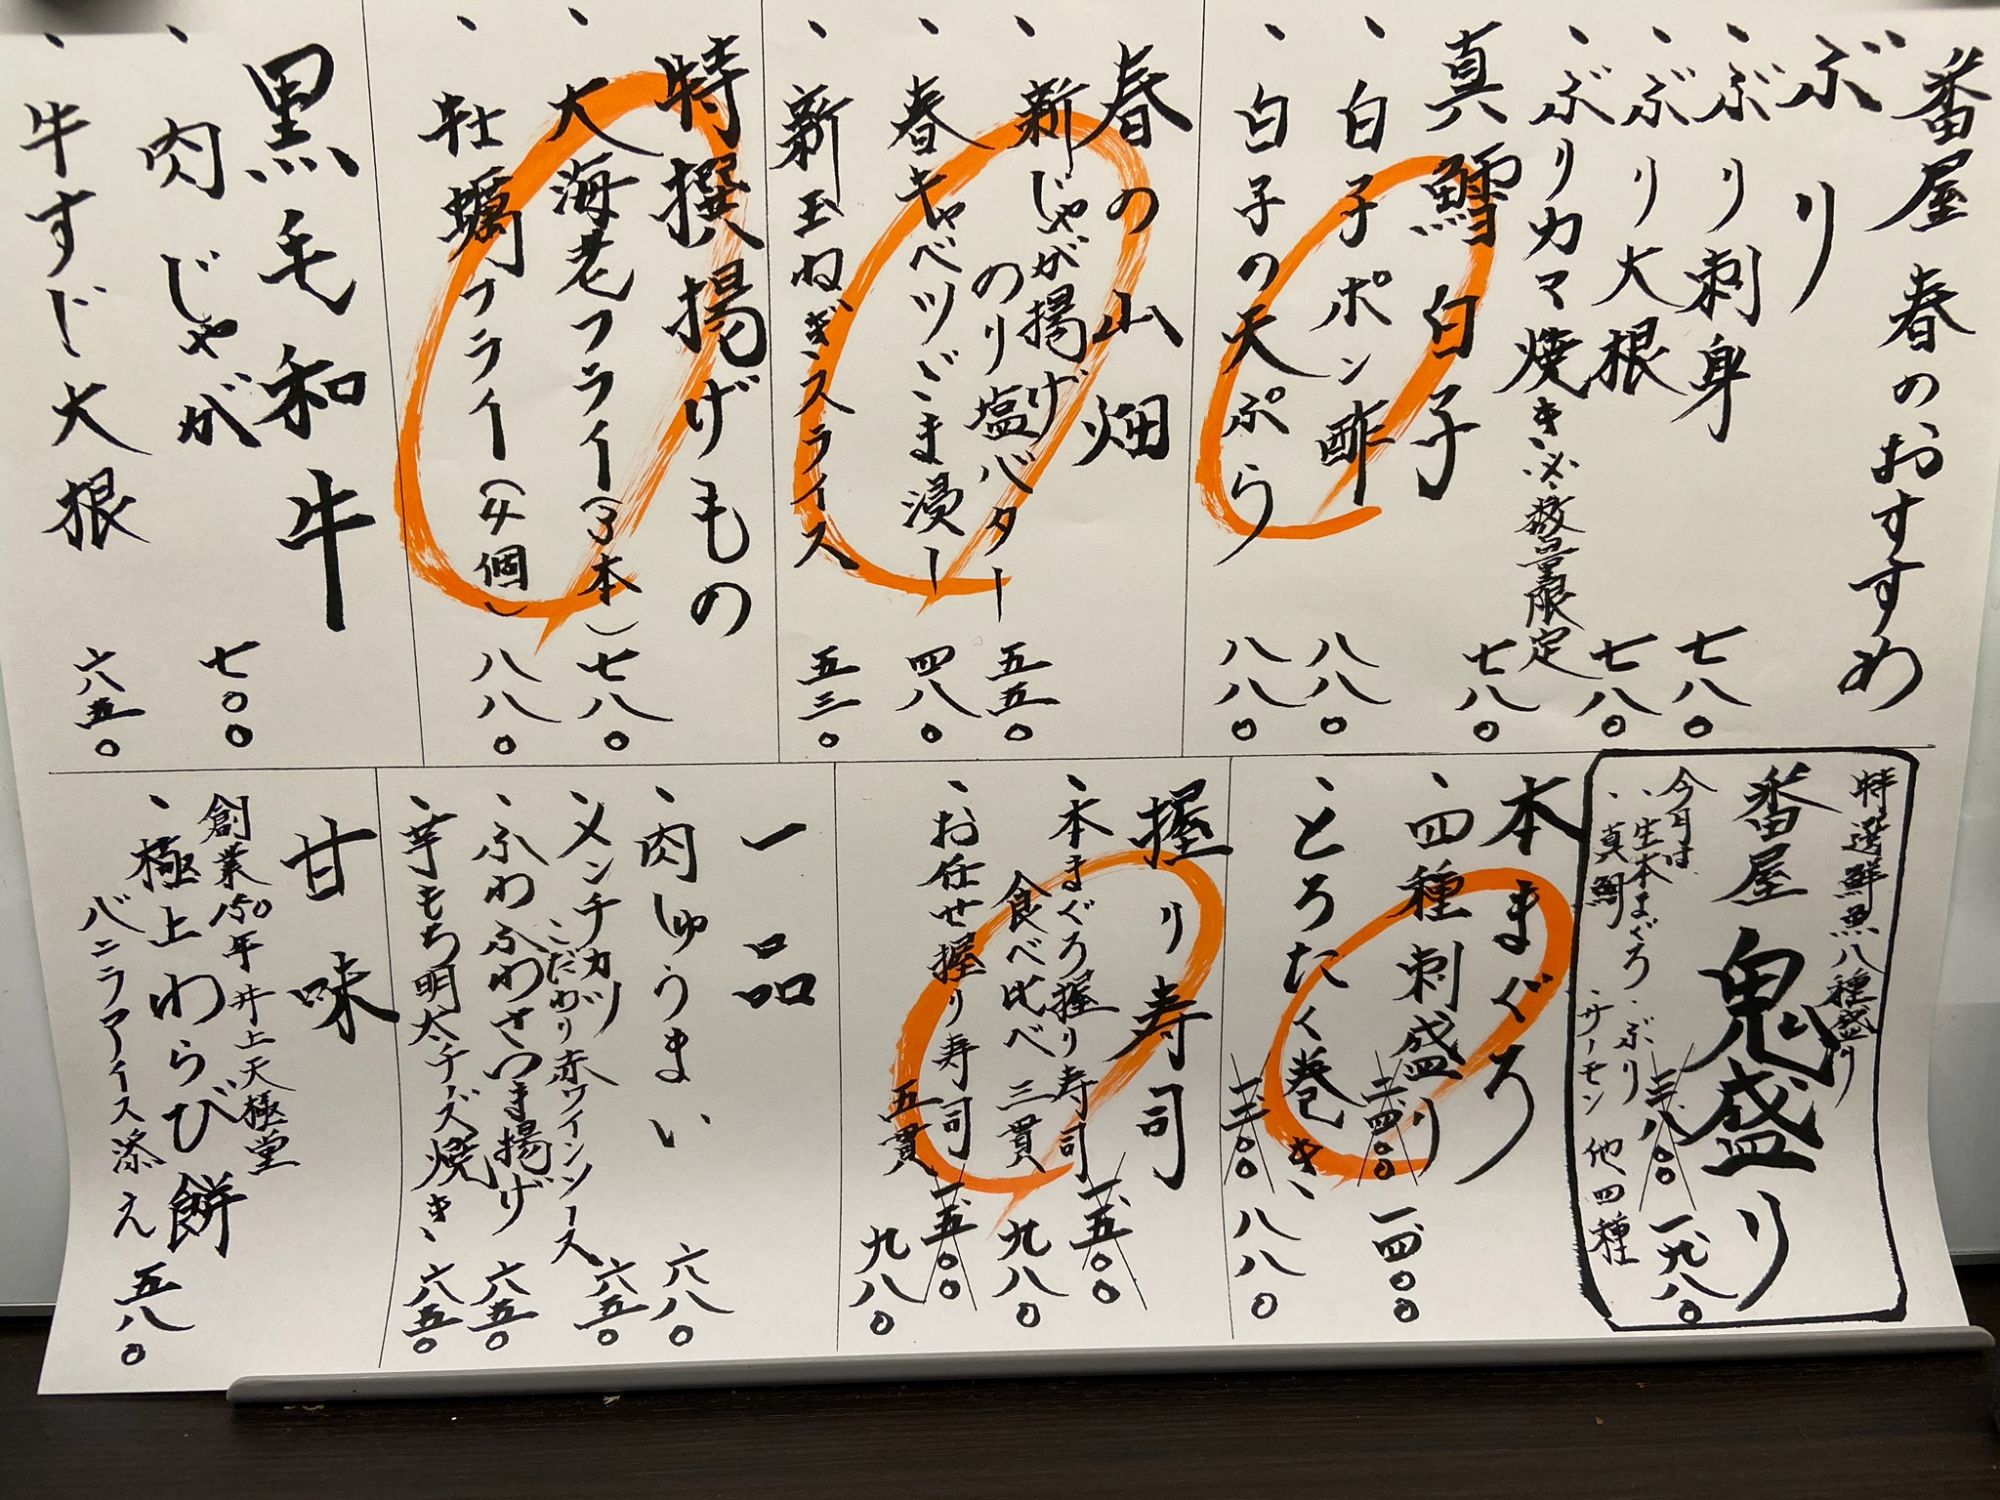 番屋 春のおすすめ
ぶり
、ぶり刺身 七八〇
、ぶり大根 七八〇
、ぶりカマ焼き ※数量限定 七八〇
真鱈白子
、白子ポン酢 八八〇
、白子の天ぷら 八八〇
春の山畑
、新じゃが揚げ
のり塩バター 五五〇
、春キャベツごま浸し 四八〇
、新玉ねぎスライス 五三〇
特撰揚げもの
、大海老フライ(3本) 七八〇
、牡蠣フライ(4個) 八八〇
黒毛和牛
、肉じゃが 七〇〇
、牛すじ大根 六五〇
特選鮮魚八種盛り
番屋 鬼盛り
三、八〇〇 一、九八〇
今月は
、生本まぐろ 、ぶり
、真鯛 、サーモン 他四種
本まぐろ
、四種刺盛り 二、四〇〇 一、四〇〇
、とろたく巻き 一、三〇〇 八八〇
握り寿司
、本まぐろ握り寿司 一、五〇〇
食べ比べ 三貫 九八〇
、お任せ握り寿司 一、五〇〇
五貫 九八〇
一品
、肉しゅうまい 六八〇
、メンチカツ
こだわり赤ワインソース 六五〇
、ふわふわさつま揚げ 六五〇
、芋もち明太チーズ焼き 六五〇
甘味
創業150年井上天極堂
、極上わらび餅
バニラアイス添え 五八〇